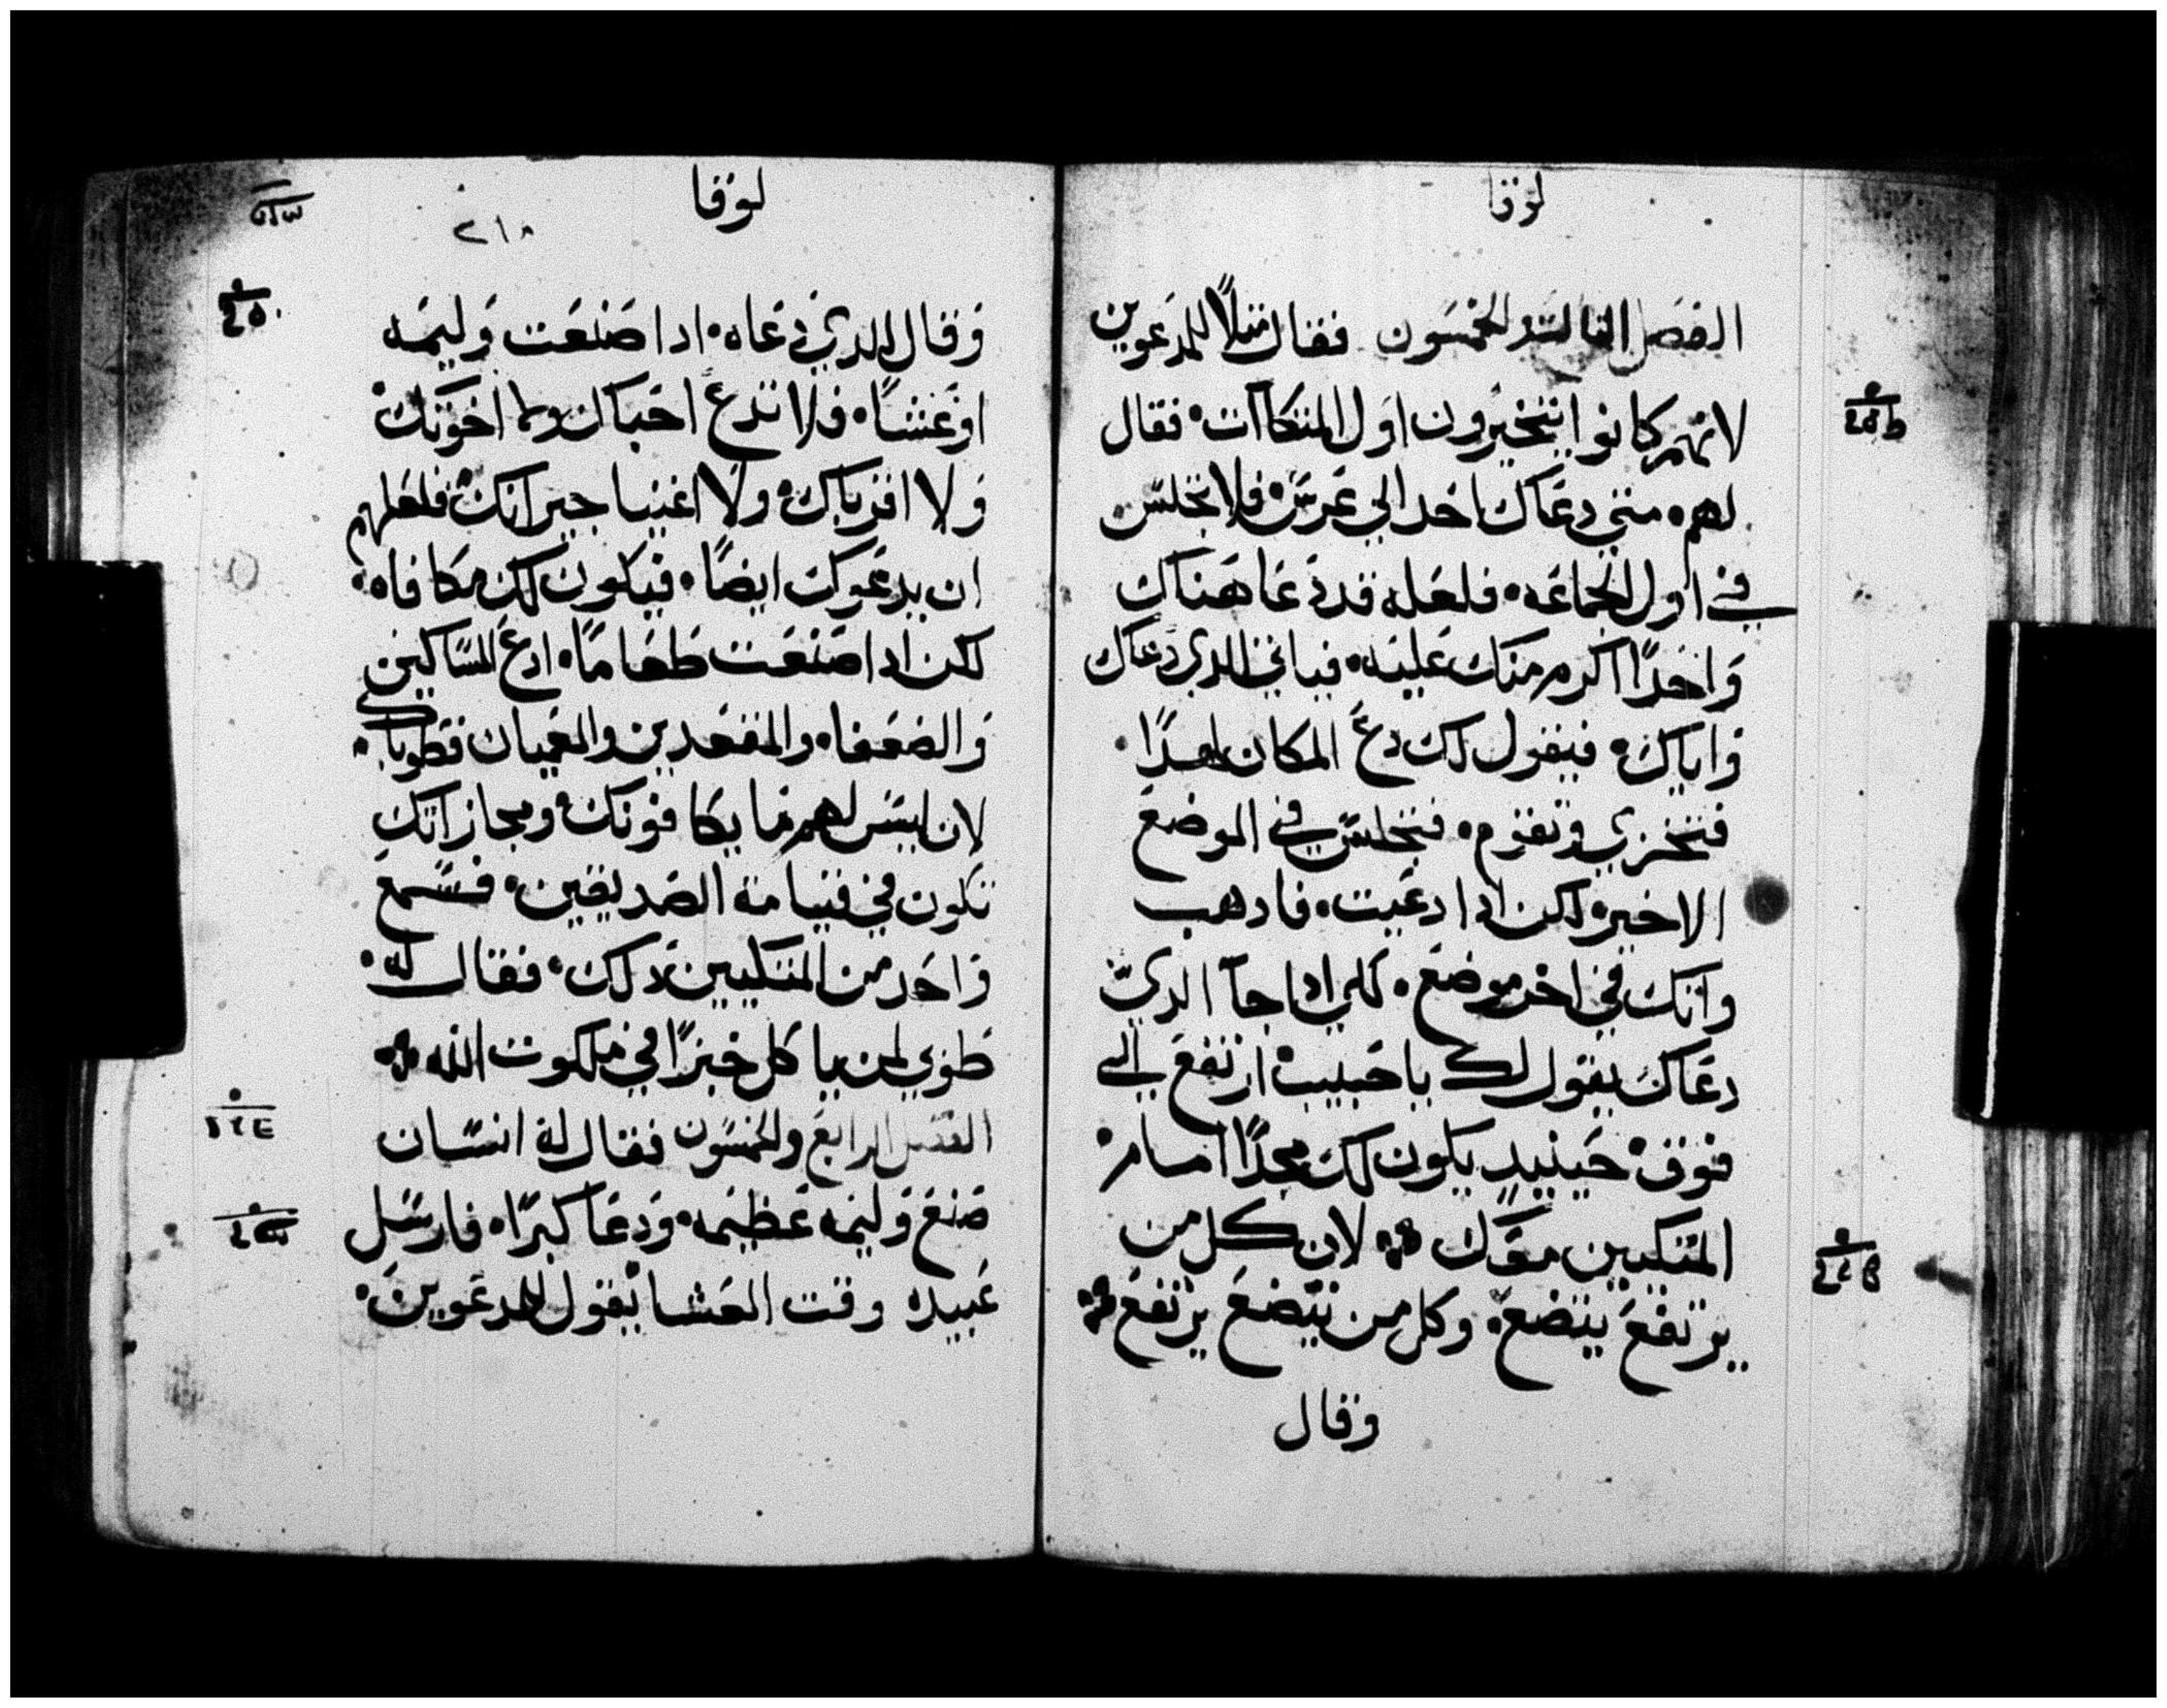 لوقا
الفصل الثالث والخمسون فقال مثلاً للمدعوين
لانهم كانوا يتخيرون اول المتكاآت۰ فقال
لهم۰ متي دعَاك احد الي عرس۰ فلا تجلس
في اول الجماعه۰ فلعله قد دعَا هناك
واحداً اكرم منك عليه۰ فياتي الدي دعاك
واياك۰ فيقول لك دع المكان لهدا۰
فتخزي وتقوم۰ فتجلس في الموضع
الاخير۰ لكن ادا دعيت۰ فادهب
واتك في اخر موضع۰ لكي ادا جآ الدي
دعَاك يقول لك يا حبيب۰ ارتفع الي
فوق۰ حينيدٍ يكون لك مجداً امام۰
المتكيين معَك ۰ لان كل من
يرتفع يتضع۰ وكل من يتضع يرتفع
وقال
لوقا
٢١٨
وقال للدي دعَاه۰ ادا صنعت وليمه
او عشاً۰ فلا تدع احباك ولا اخوتك۰
ولا اقرباك۰ ولا اغنيا جيرانك۰ فلعلهم
ان يدعوك ايضاً۰ فيكون لك مكافاه۰
لكن ادا صنعت طعاماً۰ ادع المساكين
والضعفا۰ والمقعدين والعميان فطوباك۰
لان ليس لهم ما يكافونك۰ ومجازاتك
تكون في قيامة الصديقين۰ فسمع
واحد من المتكيين دلك۰ فقال له۰
طوبي لمن ياكل خبزاً في ملكوت الله
الفصل الرابع والخمسون فقال له انسان
صنع وليمه عظيمه۰ ودعَا كبراً۰ فارسل
عبيده وقت العشا يقول للمدعوين۰